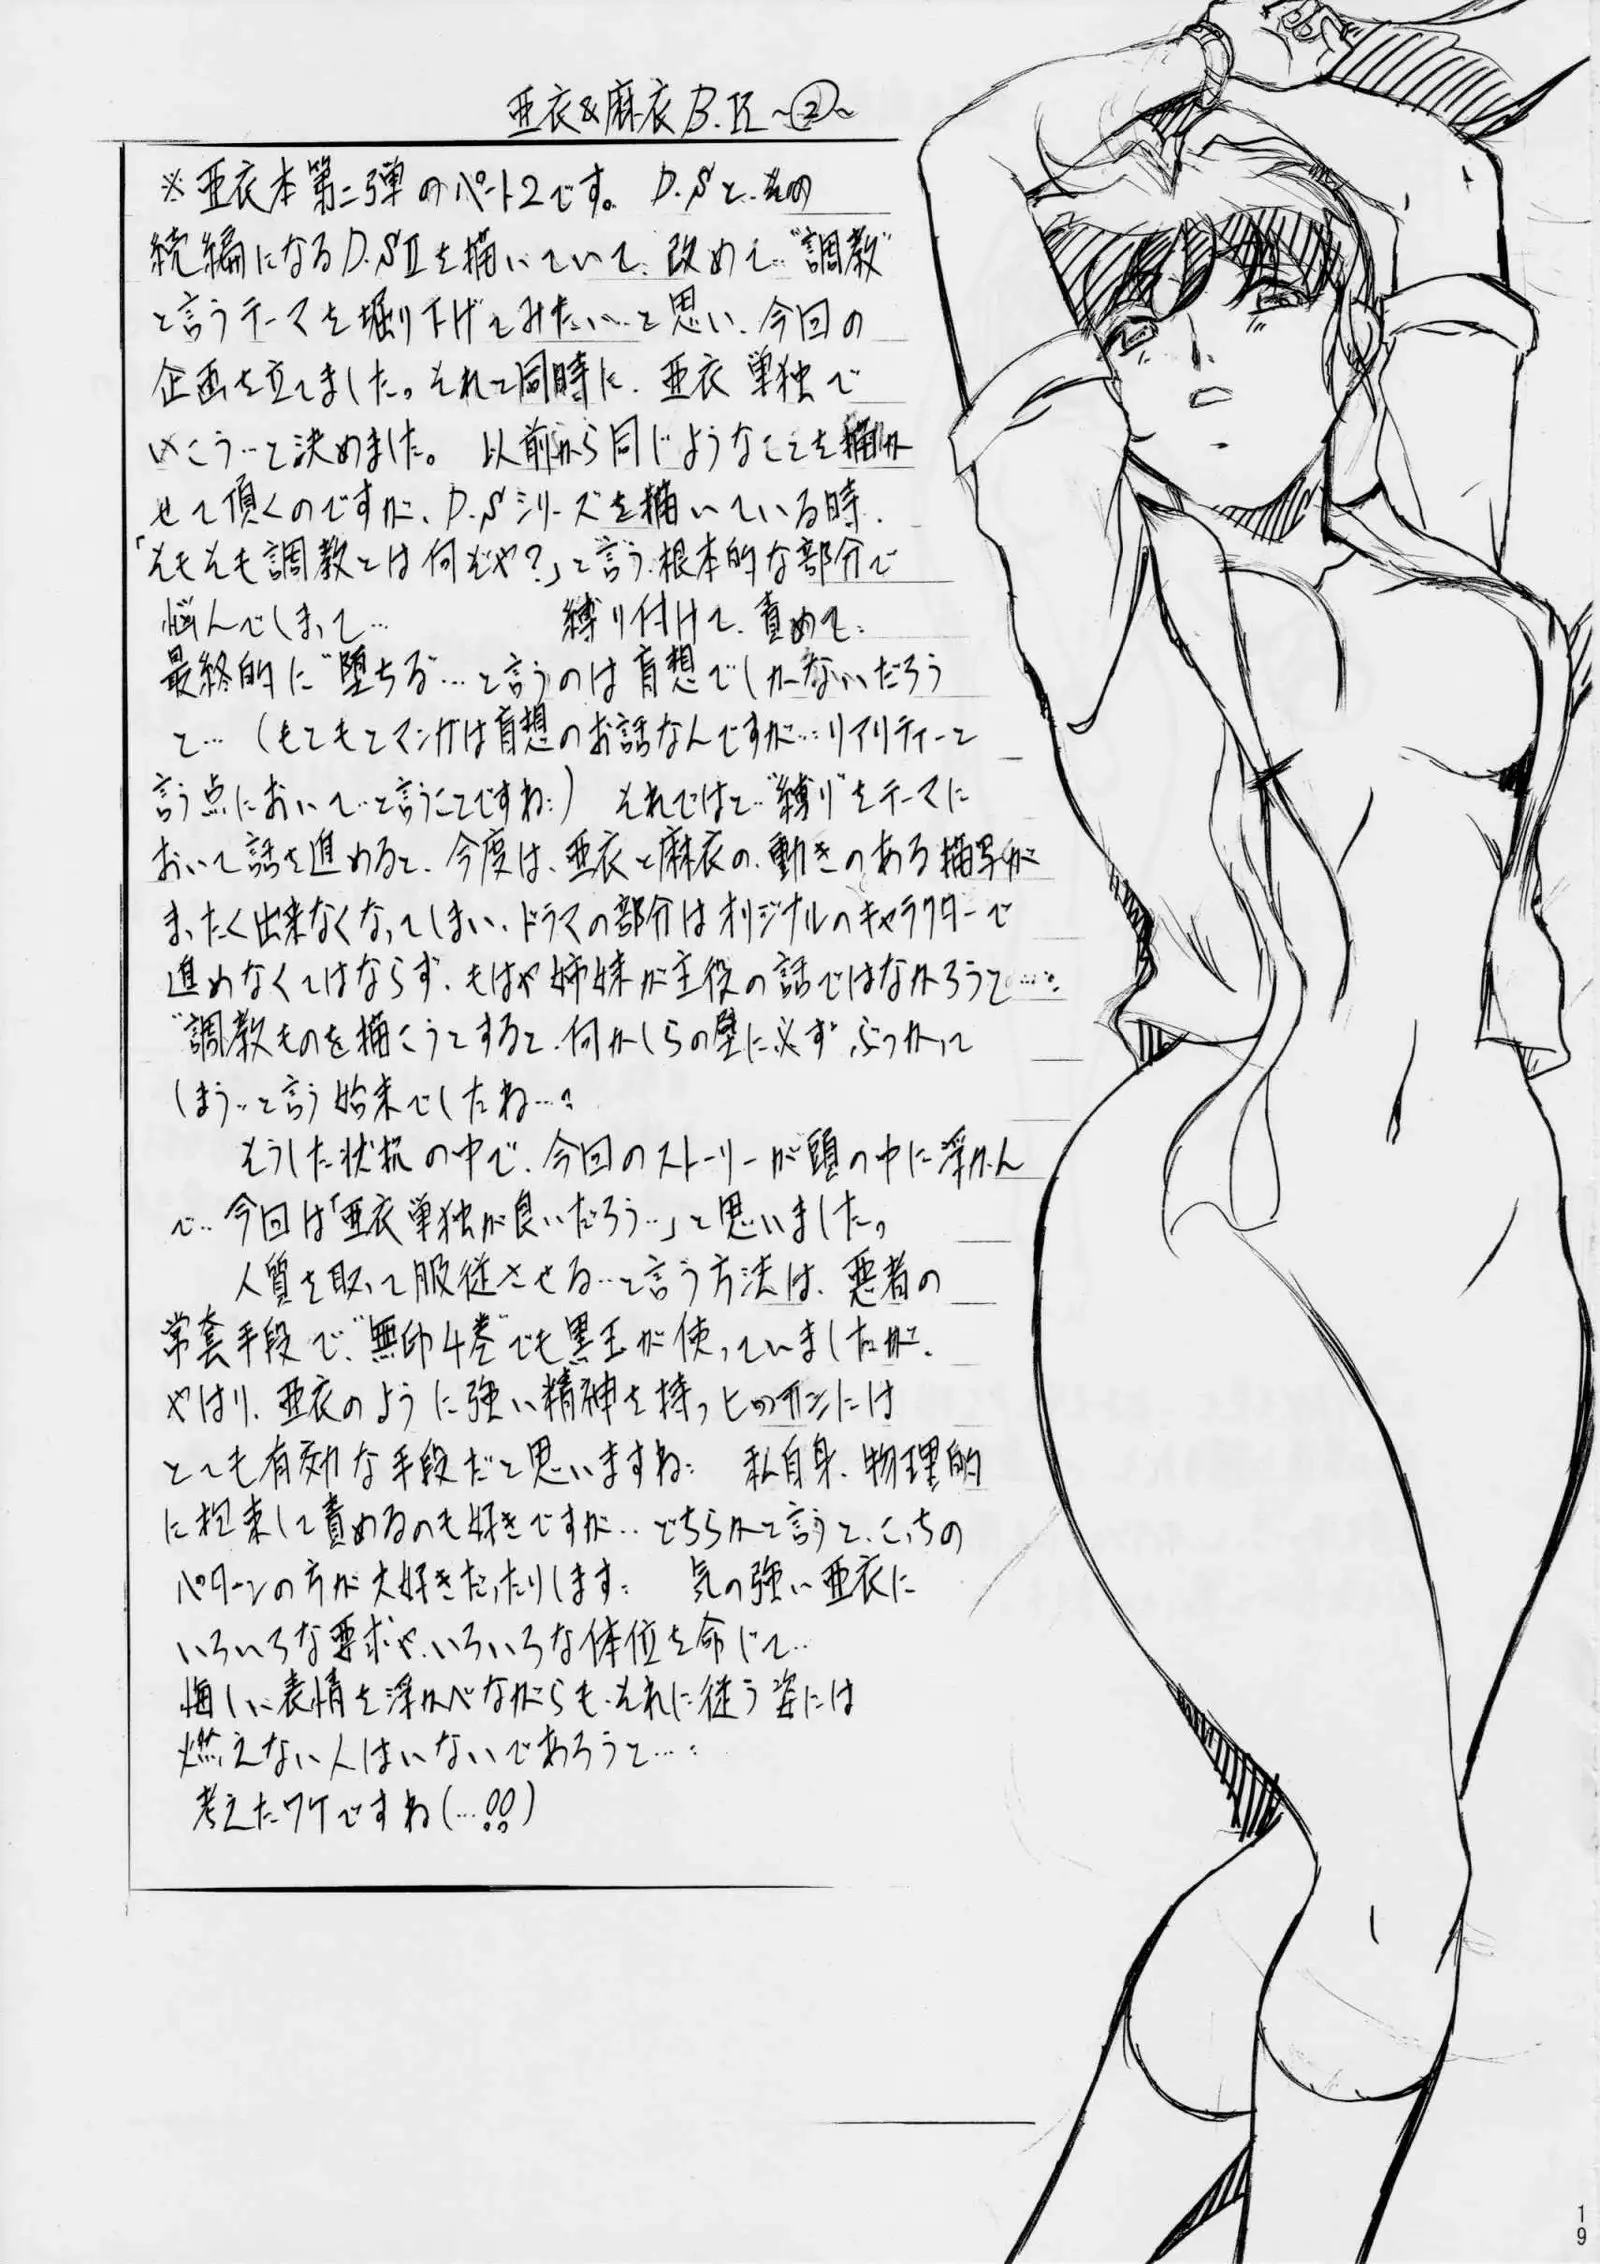 亜衣&麻衣 B.R ~②~
※亜衣本第二弾のパート2です。 D.Sと、その
続編になるD.SⅡを描いていて、改めて…"調教"
と言うテーマを掘り下げてみたい…と思い、今回の
企画を立てました。それと同時に、亜衣単独で
いこう…と決めました。 以前から同じようなことを描か
せて頂くのですが、D.Sシリーズを描いている時、
「そもそも調教とは何ぞや?」と言う、根本的な部分で
悩んでしまって… 縛り付けて、責めて…
最終的に"堕ちる"…と言うのは妄想でしかないだろう
と… (もともとマンガは妄想のお話なんですが…リアリティーと
言う点において…と言うことですね…) それではと…"縛り"をテーマに
おいて話を進めると、今度は、亜衣と麻衣の、動きのある描写が
まったく出来なくなってしまい、ドラマの部分はオリジナルのキャラクターで
進めなくてはならず、もはや姉妹が主役の話ではなかろうと…
"調教ものを描こうとすると、何かしらの壁に必ずぶつかって
しまう…と言う始末でしたね…
そうした状況の中で、今回のストーリーが頭の中に浮かん
で…今回は「亜衣単独が良いだろう…」と思いました。
人質を取って服従させる…と言う方法は、悪者の
常套手段で、"無印4巻"でも黒玉が使っていましたが、
やはり、亜衣のように強い精神を持つヒロインには
とても有効な手段だと思いますね… 私自身、物理的
に拘束して責めるのも好きですが…どちらかと言うと、こっちの
パターンの方が大好きだったりします… 気の強い亜衣に
いろいろな要求や、いろいろな体位を命じて…
悔しい表情を浮かべながらも、それに従う姿には
燃えない人はいないであろうと…
考えたワケですね(…!!)
19